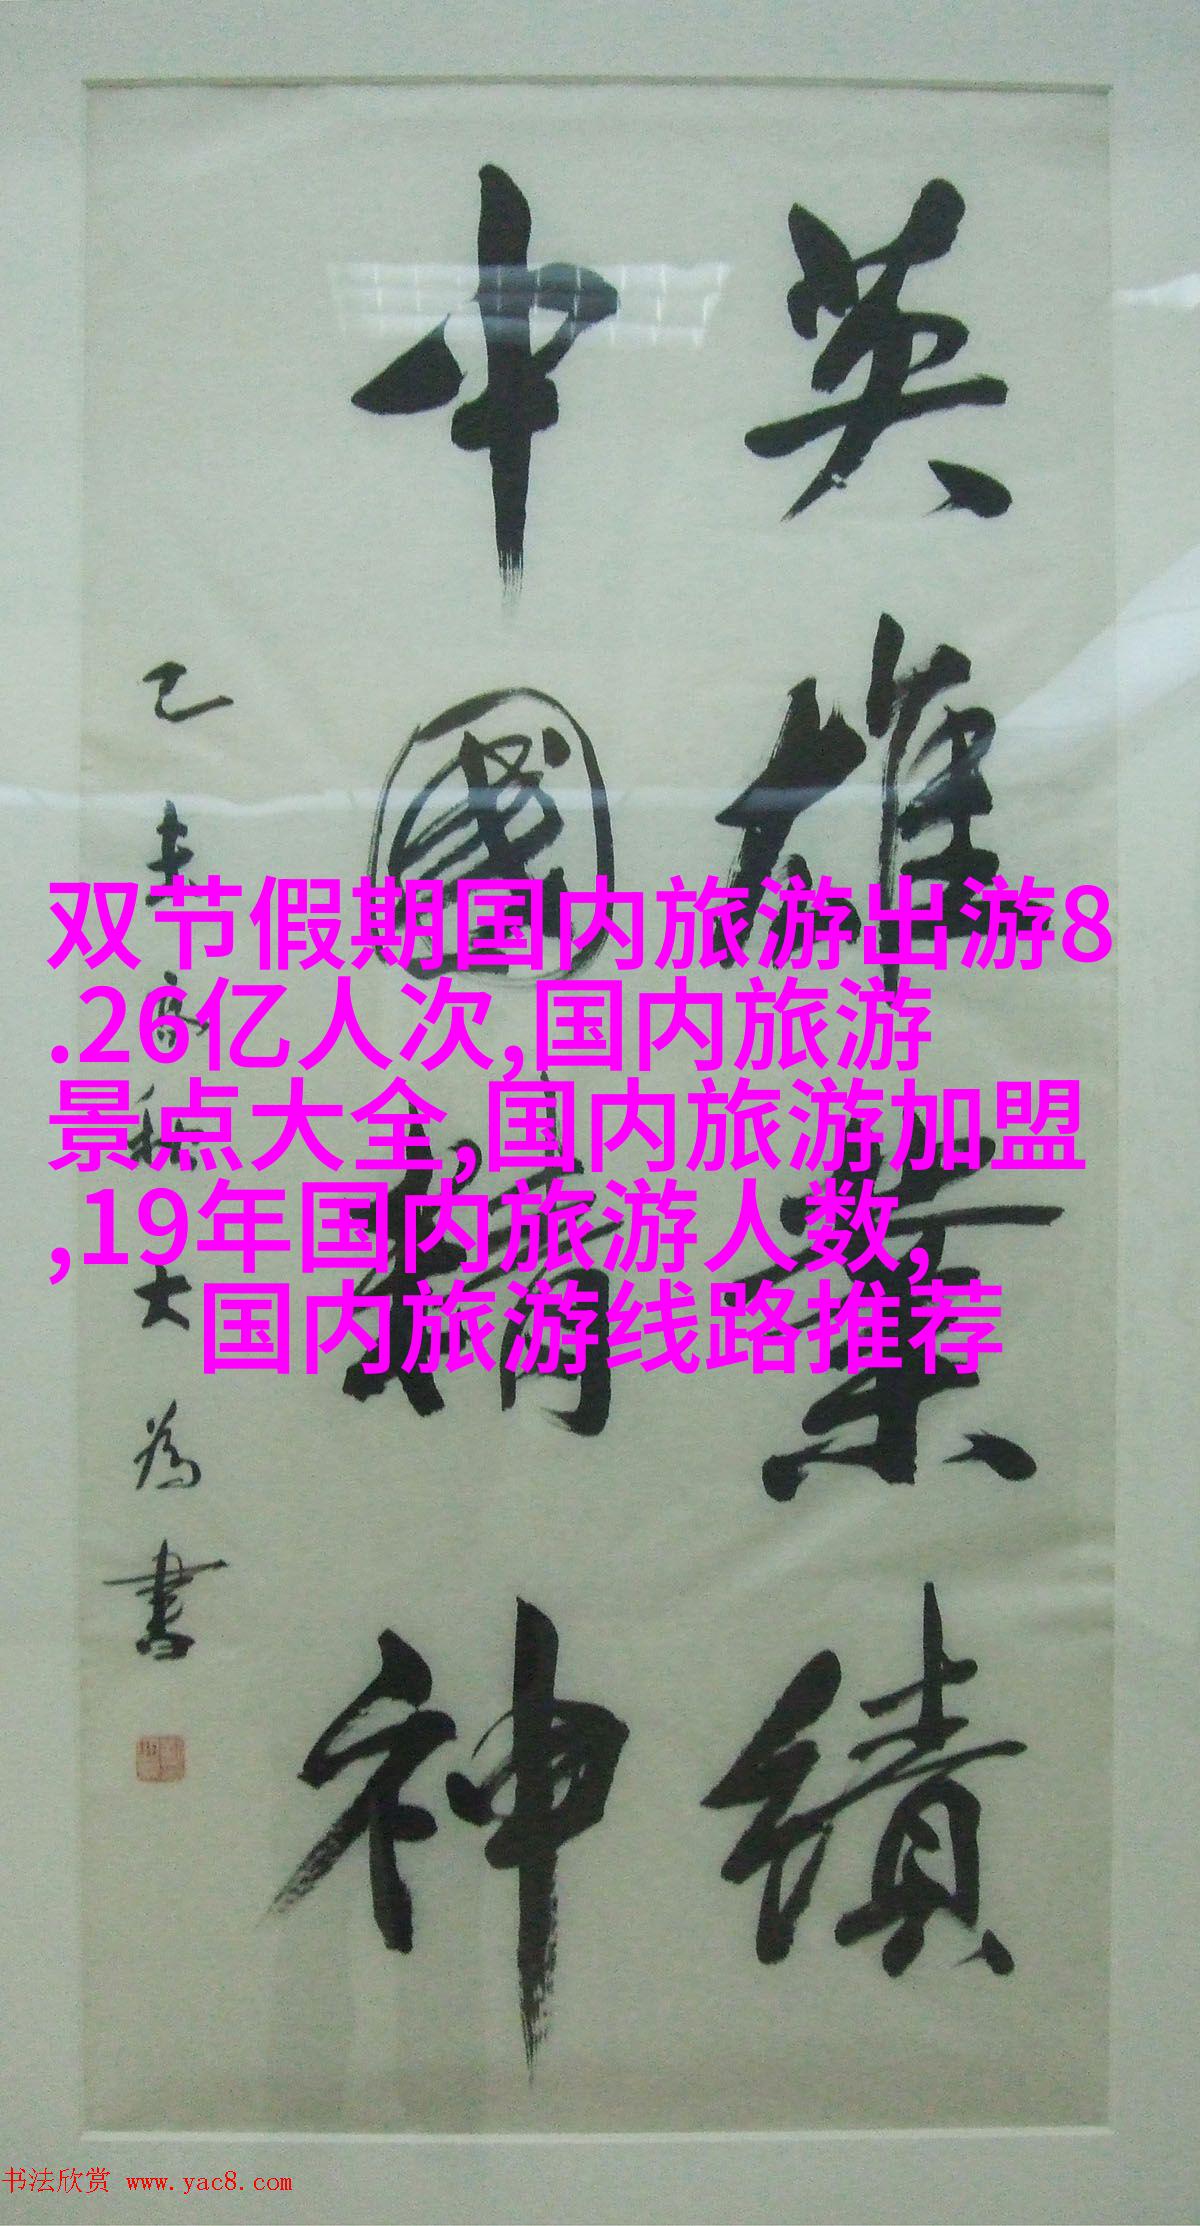 英雄業績
中國精神
己未高秋大為書
双节假期国内旅游出游8
.26亿人次,国内旅游
景点大全,国内旅游加盟
,19年国内旅游人数,
国内旅游线路推荐
书法欣赏 www.yac8.com